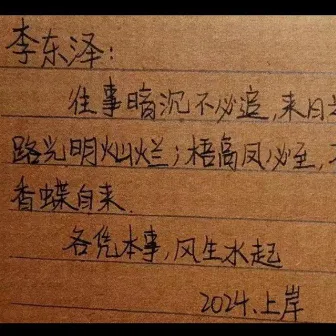 李东泽:
往事暗沉不必追,来日之
路光明灿烂;梧高凤必至,
香蝶自来.
各凭本事,风生水起
2024.上岸